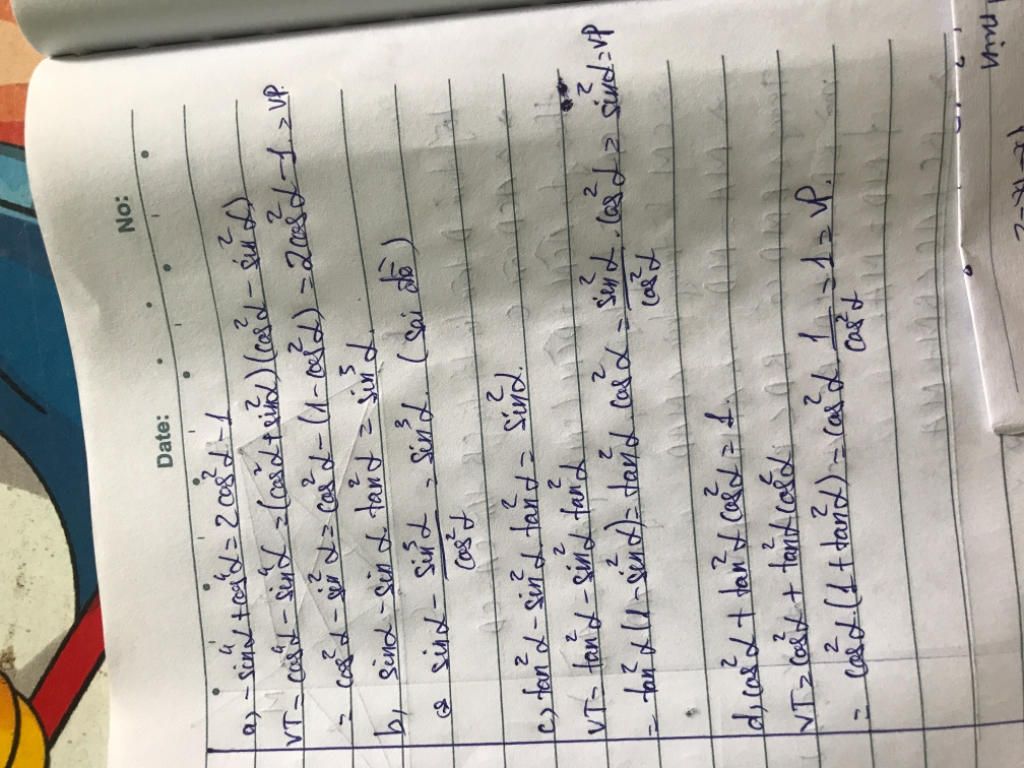 No:
Date:
a, -sin⁴α + cos⁴α = 2cos²α - 1
VT = cos⁴α - sin⁴α = (cos²α + sin²α)(cos²α - sin²α)
= cos²α - sin²α = cos²α - (1 - cos²α) = 2cos²α - 1 = VP.
b, sinα - sinα tan²α = sin³α.
sinα - sin³α/cos²α = sin³α. (sai đề)
c, tan²α - sin²α tan²α = sin²α.
VT = tan²α - sin²α tan²α
= tan²α (1 - sin²α) = tan²α cos²α = sin²α/cos²α . cos²α = sin²α = VP
d, cos²α + tan²α cos²α = 1.
VT = cos²α + tan²α cos²α
= cos²α (1 + tan²α) = cos²α 1/cos²α = 1 = VP.